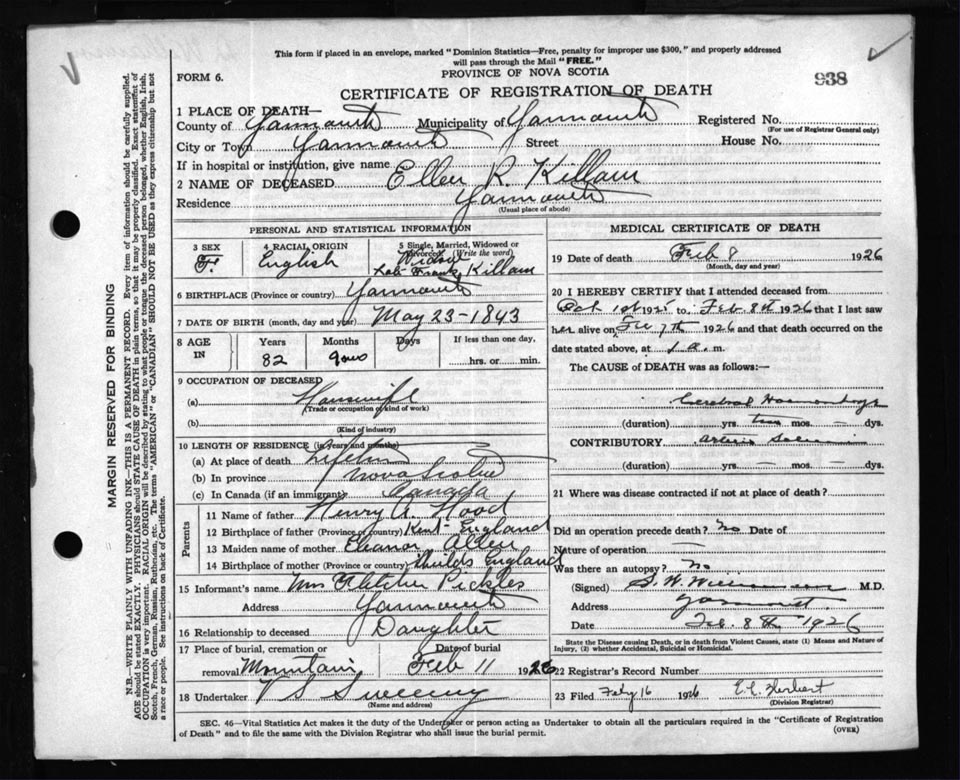 This form if placed in an envelope, marked "Dominion Statistics—Free, penalty for improper use $300," and properly addressed
will pass through the Mail "FREE."
PROVINCE OF NOVA SCOTIA
FORM 6.
938
CERTIFICATE OF REGISTRATION OF DEATH
1 PLACE OF DEATH—
County of Yarmouth Municipality of Yarmouth Registered No.
(For use of Registrar General only)
City or Town Yarmouth Street House No.
If in hospital or institution, give name
2 NAME OF DECEASED Ellen R. Killam
Residence Yarmouth
(Usual place of abode)
PERSONAL AND STATISTICAL INFORMATION
3 SEX 4 RACIAL ORIGIN 5 Single, Married, Widowed or
Divorced (Write the word)
F. English Widow
Frank Killam
6 BIRTHPLACE (Province or country) Yarmouth
7 DATE OF BIRTH (month, day and year) May 23-1843
8 AGE IN Years Months Days If less than one day,
82 9 hrs. or min.
9 OCCUPATION OF DECEASED
(a) Housewife
(Trade or occupation or kind of work)
(b)
(Kind of industry)
10 LENGTH OF RESIDENCE (in years and months)
(a) At place of death Lifetime
(b) In province Nova Scotia
(c) In Canada (if an immigrant) Canada
Parents
11 Name of father Henry A. Hood
12 Birthplace of father (Province or country) Kent-England
13 Maiden name of mother Eleanor Allen
14 Birthplace of mother (Province or country) Shields England
15 Informant's name Mrs Fletcher Pickles
Address Yarmouth
16 Relationship to deceased Daughter
17 Place of burial, cremation or Date of burial
removal Mountain Feb 11 1926
18 Undertaker V S Sweeny
(Name and address)
MEDICAL CERTIFICATE OF DEATH
19 Date of death Feb 8 1926
(Month, day and year)
20 I HEREBY CERTIFY that I attended deceased from
Oct 1st 1925 to Feb 8th 1926 that I last saw
her alive on 7th 1926 and that death occurred on the
date stated above, at 1 a.m.
The CAUSE of DEATH was as follows:—
Cerebral Haemorrhage
(duration) yrs. mos. — dys.
CONTRIBUTORY
(duration) yrs. — mos. — dys.
21 Where was disease contracted if not at place of death?
Did an operation precede death? No Date of
Nature of operation —
Was there an autopsy? No
(Signed) S. W. Williamson M.D.
Address Yarmouth
Date Feb. 8th 1926
State the Disease causing Death, or in death from Violent Causes, state (1) Means and Nature of
Injury, (2) whether Accidental, Suicidal or Homicidal.
22 Registrar's Record Number
23 Filed Feby 16 1926 E. C. Herbert
(Division Registrar)
SEC. 46—Vital Statistics Act makes it the duty of the Undertaker or person acting as Undertaker to obtain all the particulars required in the "Certificate of Registration
of Death" and to file the same with the Division Registrar who shall issue the burial permit.
(OVER)
MARGIN RESERVED FOR BINDING
N.B.—WRITE PLAINLY WITH UNFADING INK—THIS IS A PERMANENT RECORD. Every item of information should be carefully supplied.
AGE should be stated EXACTLY. PHYSICIANS should STATE CAUSE OF DEATH in plain terms, so that it may be properly classified. Exact statement of
OCCUPATION is very important. RACIAL ORIGIN will be described by stating to what people or tongue the deceased person belonged, whether English, Irish,
Scotch, French, German, Russian, Ruthenian, etc. The terms "AMERICAN" or "CANADIAN" SHOULD NOT BE USED as they express citizenship but not
a race or people. See instructions on back of Certificate.